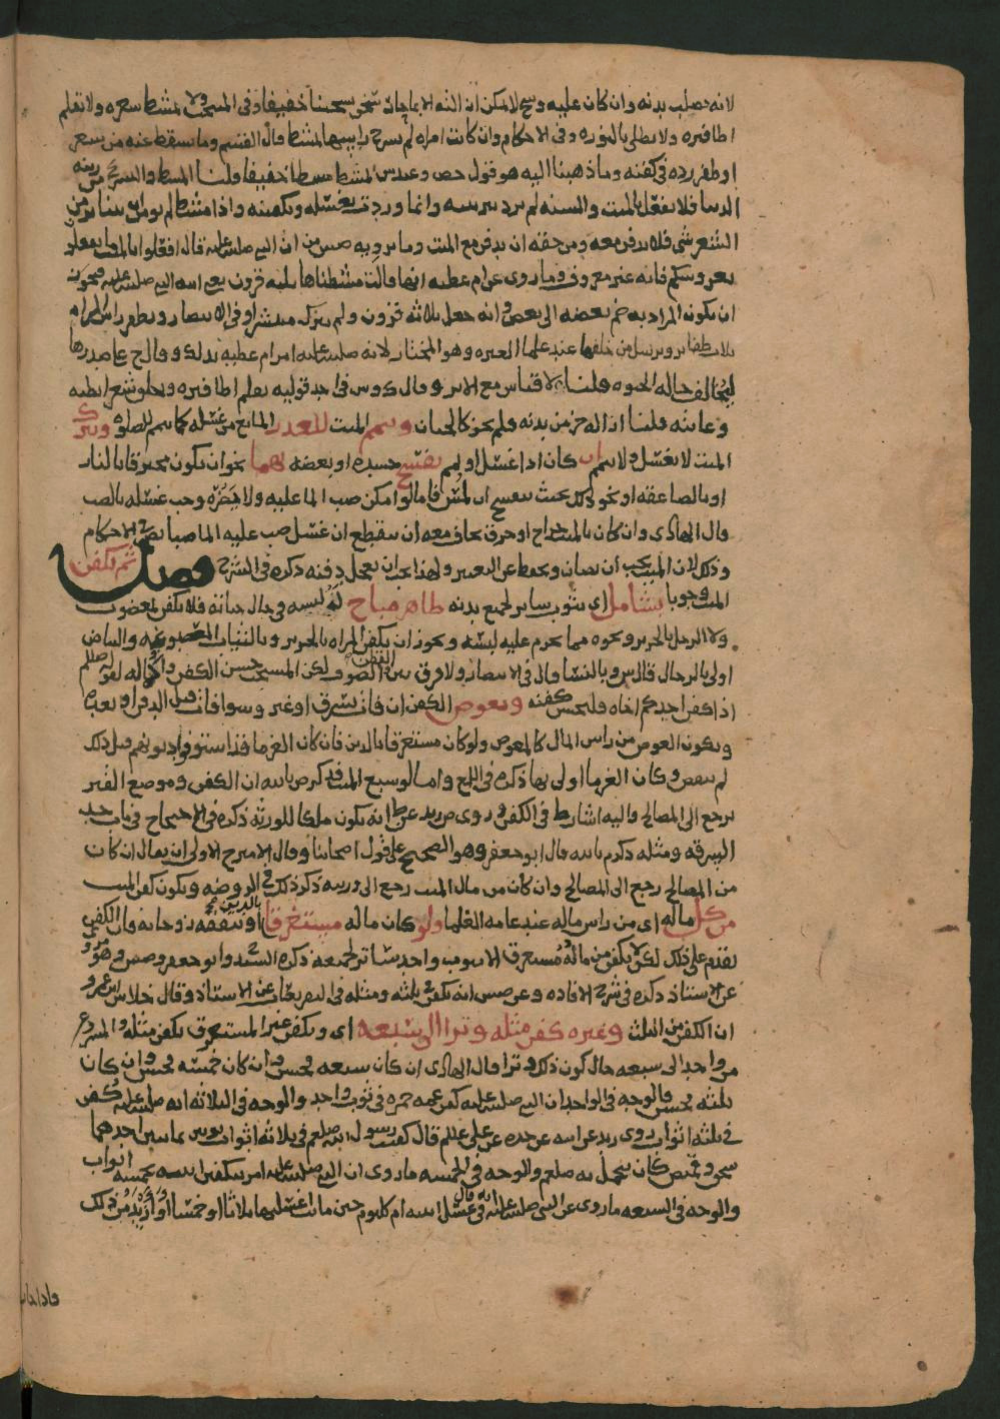 لانه يصلب بدنه وان كان عليه وسخ لا يمكن ازالته الا بماء حار سخن سخينا خفيفا وفي المنتخب ولا يمشط شعره ولا تقلم
اظافيره ولا يطلى بالنوره وفي الاحكام وان كانت امراه لم يسرح راسها بالمشط قال القسم وما سقط عنه من شعر
او ظفر رده في كفنه وما ذهبنا اليه هو قول حص وعند س المشط مشطا خفيفا ولنا المشط والتسريح من زينه
الدنيا فلا يفعل بالميت والسنه لم ترد بزينته وانما وردت بغسله وتكفينه واذا مشط لم يومن ان يتناثر من
الشعر شي فلا يدفن معه ومن حقه ان يدفن مع الميت وما يرويه صش من ان النبي صلى الله عليه قال افعلوا بالميت ما يفعل
بعروسكم فانه غير معروف وما روي عن ام عطيه انها قالت مشطناها ثلثه قرون يعني ابنه النبي صلى الله عليه فيجوز
ان يكون المراد به ضم بعضه الى بعض وانه جعل ثلاثه قرون ولم يترك منتشرا وفي الانتصار ويظفر راس المراه
ثلاث ظفاير ويرسل من خلفها عند علما العتره وهو المختار لانه صلى الله عليه امر ام عطيه بذلك وقال ح على صدرها
ليخالف حاله الحيوه قلنا لا قياس مع الاثر وقال ك وش في احد قوليه يقلم اظافيره ويحلق شعر ابطيه
وعانته قلنا ازاله جزء من بدنه فلم يجز كالختان وييمم الميت للعذر المانع من غسله كما ييمم للصلوه ويترك
الميت لا يغسل ولا ييمم ان كان اذا غسل او يمم تفسخ جسده او بعضه بهما نحو ان يكون محترقا بالنار
او بالصاعقه او نحو ذلك بحيث يتفسح ان لمس قاما لو امكن صب الما عليه ولا يضره وجب غسله بالصب
قال الهادي وان كان بالميت جراح او حرق يخاف معه ان يتقطع ان غسل صب عليه الما صبا نص في الاحكام
وذلك لان الميت يجب ان يصان ويحفظ عن التغيير ولهذا يجب ان يعجل دفنه ذكره في الشرح فصل ثم يكفن
الميت وجوبا بشامل اي بثوب ساتر لجميع بدنه طاهر مباح له لبسه في حال حياته فلا يكفن بمغصوب
ولا الرجل بالحرير ونحوه مما يحرم عليه لبسه ويجوز ان يكفن المراه بالحرير وبالثياب المصبوغه والبياض
اولى بالرجال قال ش وبالنسا وقال في الانتصار ولا فرق بين القطن الصوف لكن المستحب حسن الكفن وكماله لقوله صلعم
اذا كفن احدكم اخاه فليحسن كفنه ويعوض الكفن ان فان سرق او غير وسوا فان قبل الدفن او بعده
ويكون العوض من راس المال كالمعوض ولو كان مستغرقا بالدين فان كان الغرما قد استوفوا ديونهم قبل ذلك
لم ينقض وكان الغرما اولى بها ذكره في اللمع واما لو سبع الميت فذكر ص بالله ان الكفن وموضع القبر
يرجع الى المصالح واليه اشار ط في الكفن وروى ص زيد عن ط انه يكون ملكا للورثه ذكره في الاحتجاج في باب حد
السرقه ومثله ذكر م بالله قال ابو جعفر وهو الصحيح على قول اصحابنا وقال الامير ح الاولى ان يقال ان كان
من المصالح رجع الى المصالح وان كان من مال الميت رجع الى ورثته ذكر ذلك في الروضه ويكون كفن الميت
من كل ماله اي من راس ماله عند عامه العلما ولو كان ماله مستغرقا بالدين او بنفقه زوجاته فان الكفن
يقدم على ذلك لكن لا يكفن من ماله مستغرق الا بثوب واحد ساتر لجميعه ذكره السيد وابو جعفر وص ش وهو مروي
عن الاستاذ ذكره في شرح الافاده وعن ص ش انه يكفن في ثلثه ومثله في التفريعات عن الاستاذ وقال خلاس ابن عمرو
ان الكفن من الثلث وغيره كفن مثله وترا الى سبعه اي ويكفن غير المستغرق بكفن مثله والمشروع
من واحد الى سبعه حال كون ذلك وترا قال الهادي ان كان سبعه فحسن وان كان خمسه فحسن وان كان
ثلثه فحسن فالوجه في الواحد ان النبي صلى الله عليه كفن عمه حمزه في ثوب واحد والوجه في الثلاثه انه صلى الله عليه كفن
في ثلثه اثواب روى زيد عن ابيه عن جده عن علي علم قال كفنت رسول الله صلعم في ثلاثه اثواب ثوبين يمانيين احدهما
سحق وقميص كان يتجمل به صلعم والوجه في الخمسه ما روي ان النبي صلى الله عليه امر بتكفين ابنته بخمسه اثواب
والوجه في السبعه ما روي عن النبي صلى الله عليه انه قال في غسل ابنته ام كلثوم حين ماتت اغسليها ثلاثا او خمسا او ازيد من ذلك